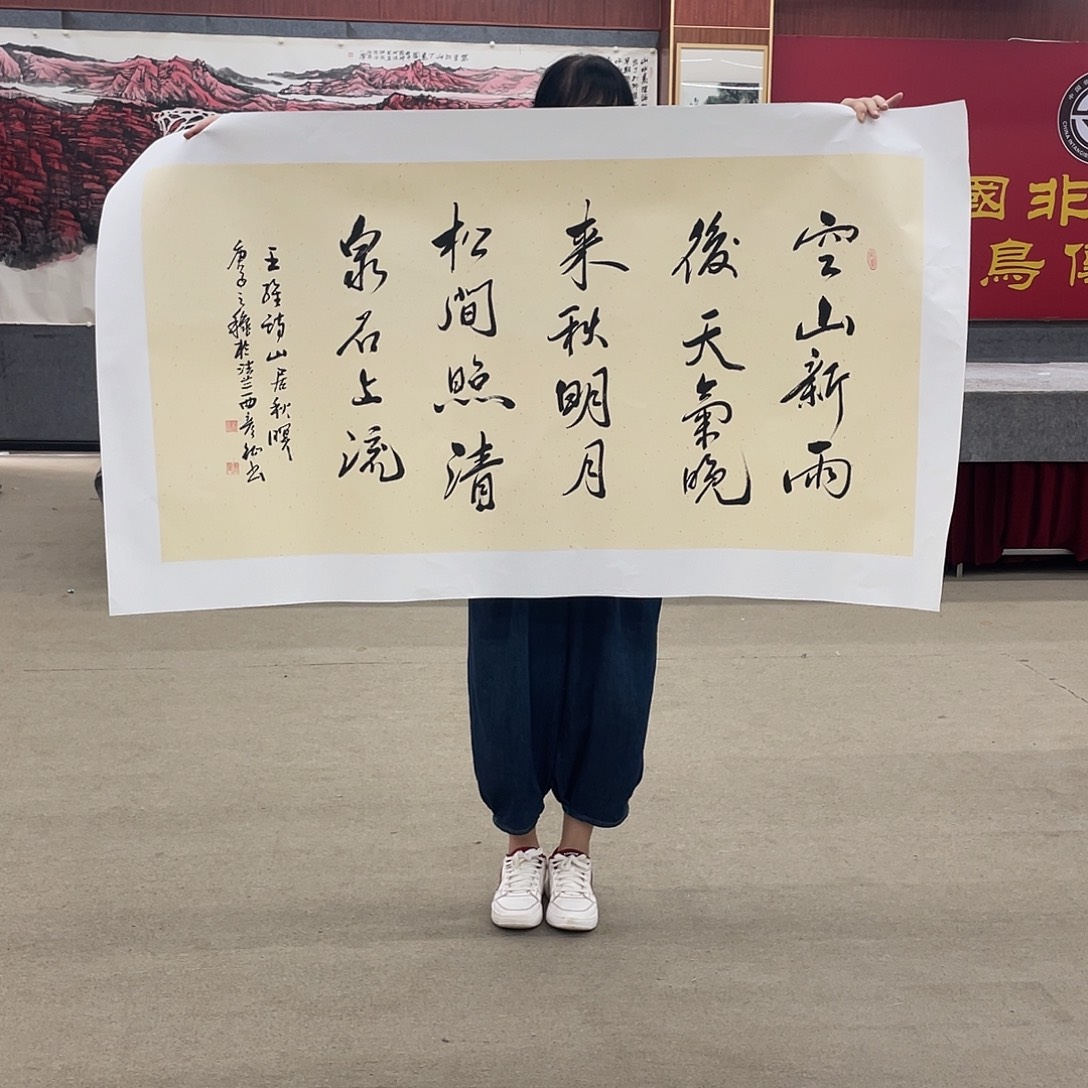 空山新雨
後天氣晚
来秋明月
松间照清
泉石上流
王維詩山居秋暝
庚子之穐於法兰西
國非
鳥